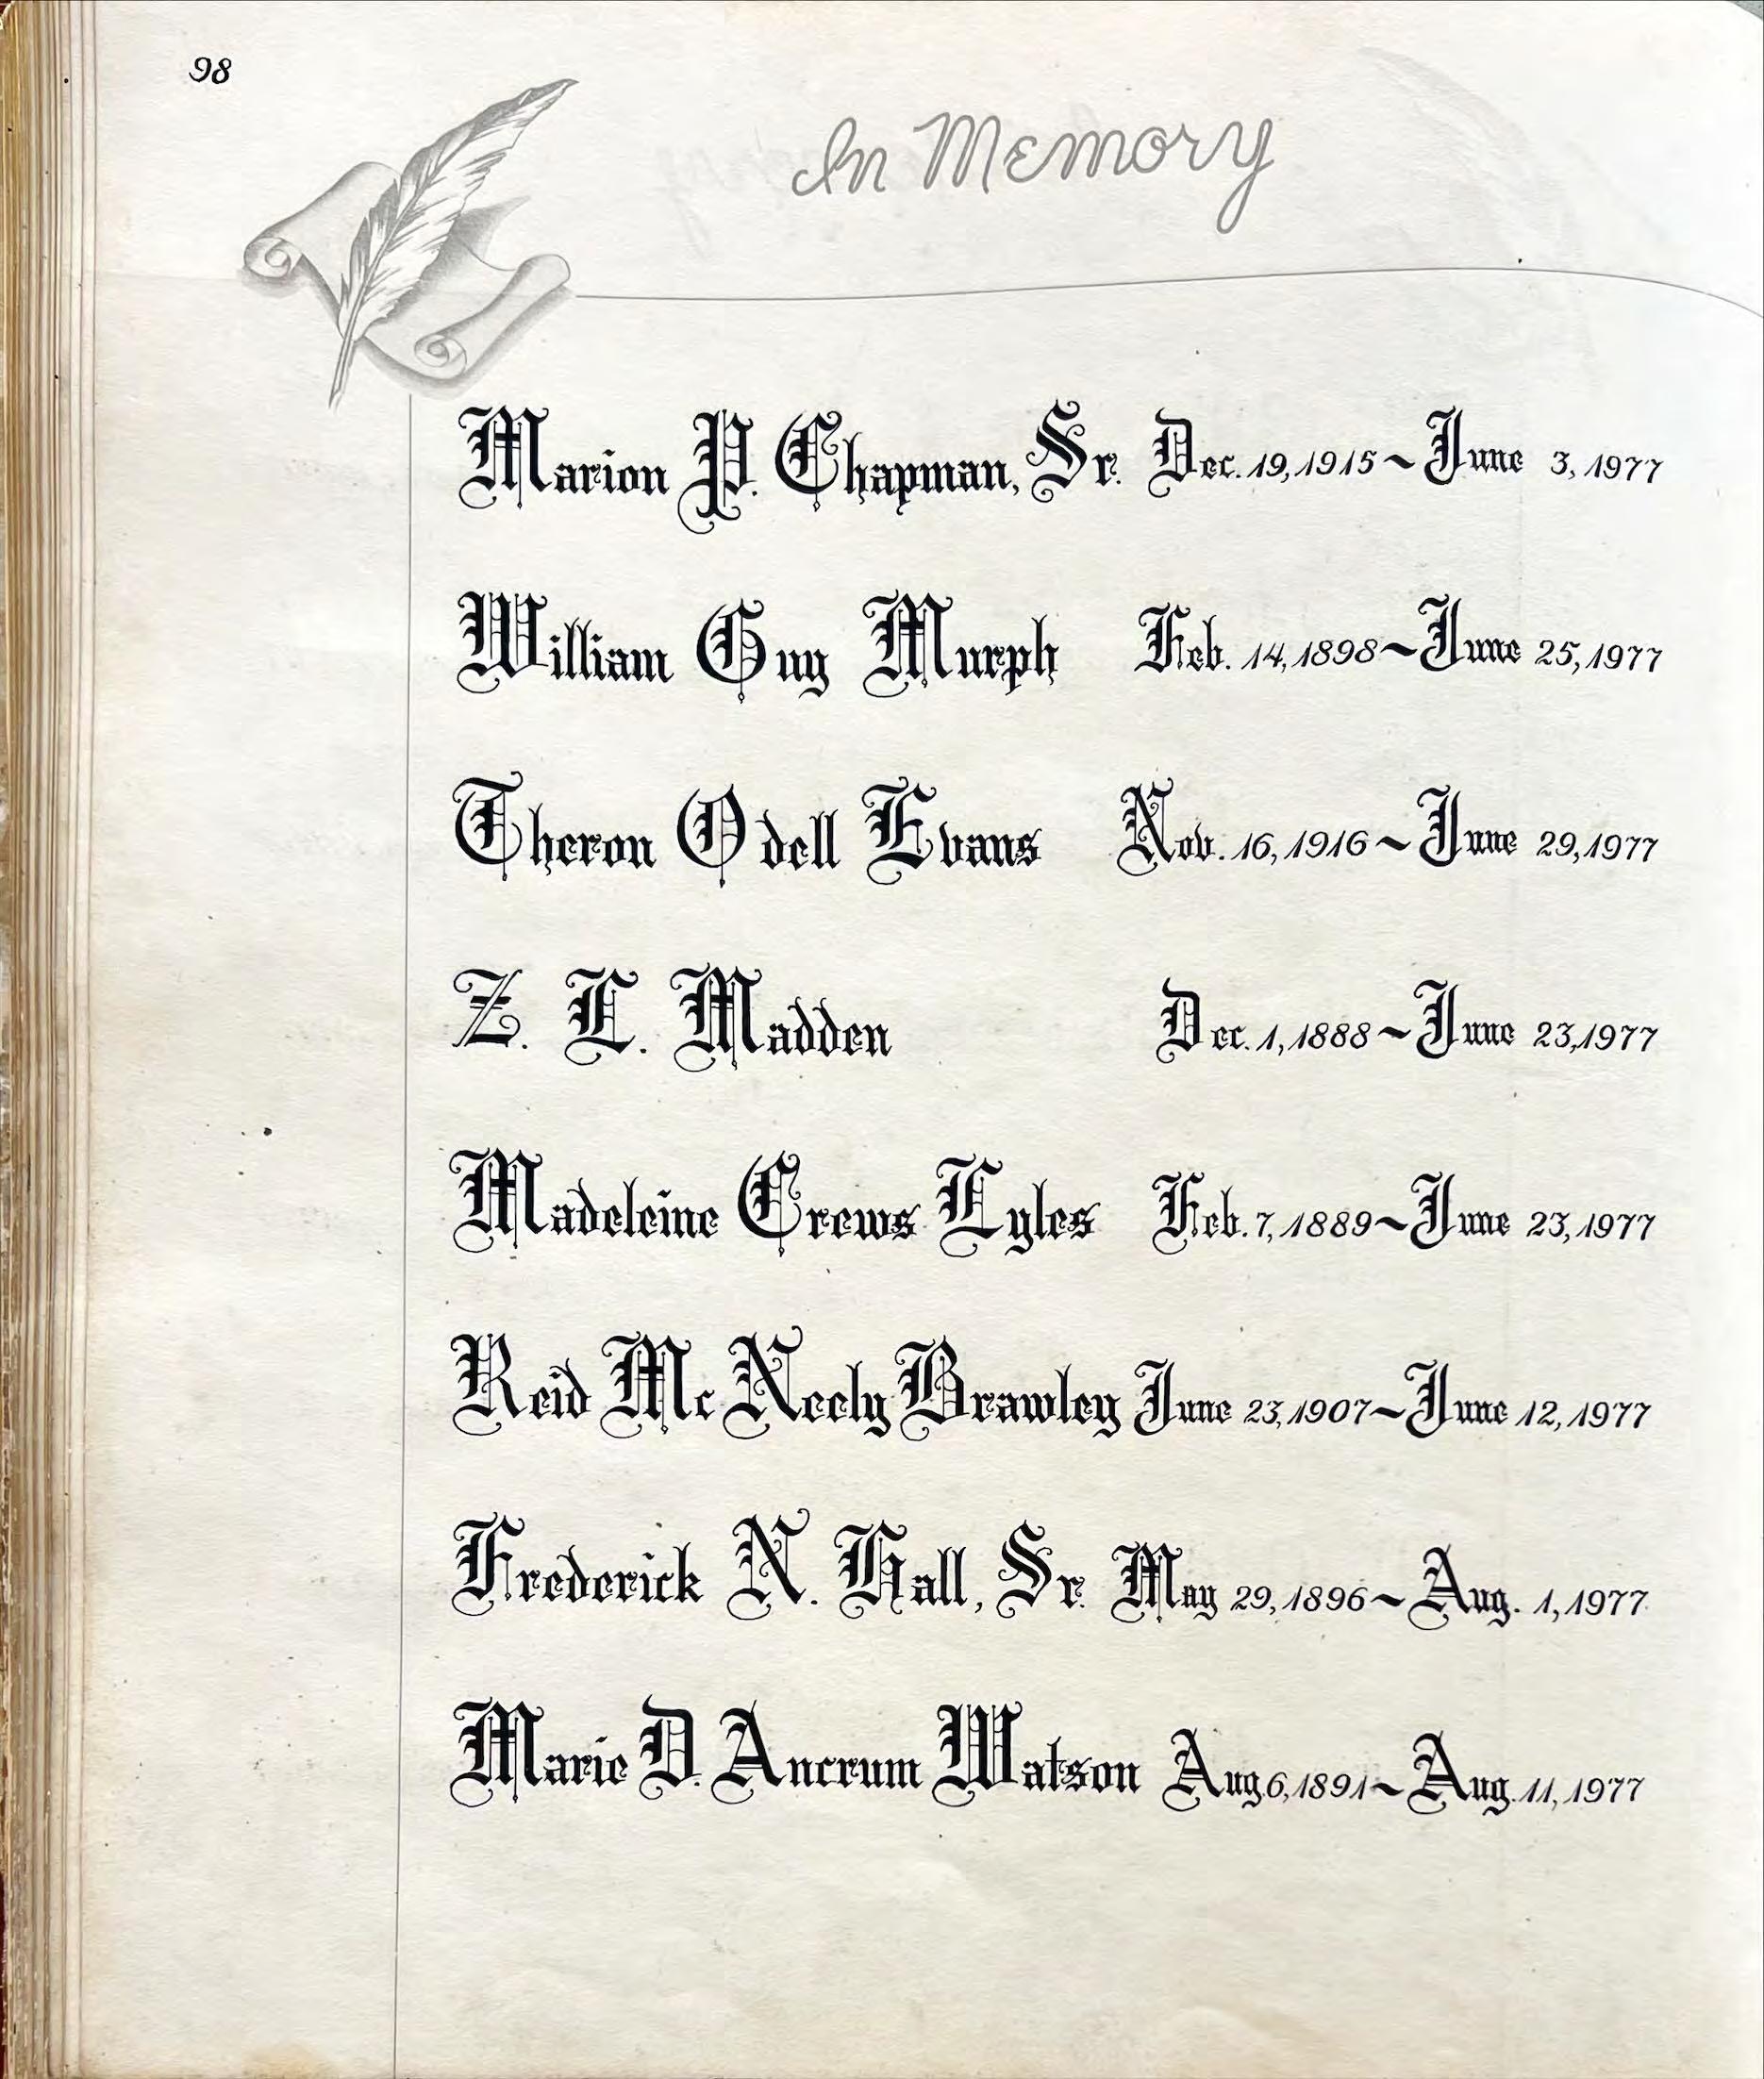 98
In Memory
Marion P. Chapman, Sr. Dec. 19, 1915 ~ June 3, 1977
William Guy Murph Feb. 14, 1898 ~ June 25, 1977
Theron Odell Evans Nov. 16, 1916 ~ June 29, 1977
Z. L. Madden Dec. 1, 1888 ~ June 23, 1977
Madeleine Crews Lyles Feb. 7, 1889 ~ June 23, 1977
Reid McNeely Brawley June 23, 1907 ~ June 12, 1977
Frederick N. Hall, Sr. May 29, 1896 ~ Aug. 1, 1977
Marie D. Ancrum Watson Aug 6, 1891 ~ Aug. 11, 1977